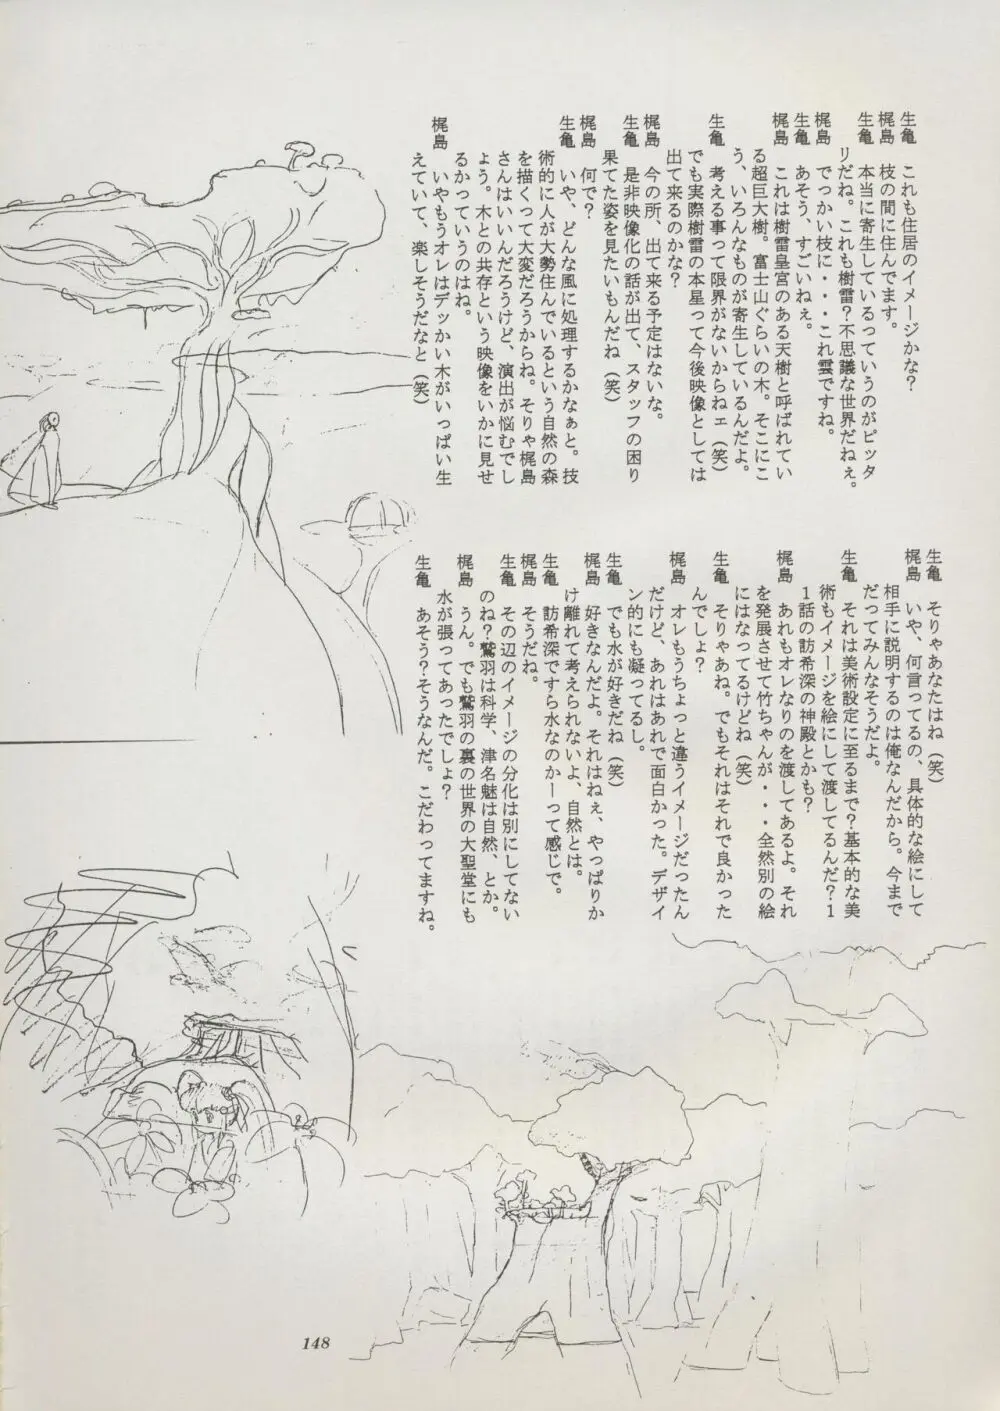 生亀　これも住居のイメージかな？
梶島　枝の間に住んでます。
生亀　本当に寄生しているっていうのがピッタ
リだね。これも樹雷？不思議な世界だねぇ。
梶島　でっかい枝に・・・これ雲ですね。
生亀　あそう、すごいねぇ。
梶島　これは樹雷皇宮のある天樹と呼ばれてい
る超巨大樹。富士山ぐらいの木。そこにこ
う、いろんなものが寄生しているんだよ。
生亀　考える事って限界がないからねェ（笑）
でも実際樹雷の本星って今後映像としては
出て来るのかな？
梶島　今の所、出て来る予定はないな。
生亀　是非映像化の話が出て、スタッフの困り
果てた姿を見たいもんだね（笑）
梶島　何で？
生亀　いや、どんな風に処理するかなぁと。技
術的に人が大勢住んでいるという自然の森
を描くって大変だろうからね。そりゃ梶島
さんはいいんだろうけど、演出が悩むでし
ょう。木との共存という映像をいかに見せ
るかっていうのはね。
梶島　いやもうオレはデッかい木がいっぱい生
えていて、楽しそうだなと（笑）
生亀　そりゃあなたはね（笑）
梶島　いや、何言ってるの、具体的な絵にして
相手に説明するのは俺なんだから。今まで
だってみんなそうだよ。
生亀　それは美術設定に至るまで？基本的な美
術もイメージを絵にして渡してるんだ？１
１話の訪希深の神殿とかも？
梶島　あれもオレなりのを渡してあるよ。それ
を発展させて竹ちゃんが・・・全然別の絵
にはなってるけどね（笑）
生亀　そりゃあね。でもそれはそれで良かった
んでしょ？
梶島　オレもうちょっと違うイメージだったん
だけど、あれはあれで面白かった。デザイ
ン的にも凝ってるし。
生亀　でも水が好きだね（笑）
梶島　好きなんだよ。それはねぇ、やっぱりか
け離れて考えられないよ、自然とは。
生亀　訪希深ですら水なのかーって感じで。
梶島　そうだね。
生亀　その辺のイメージの分化は別にしてない
のね？鷲羽は科学、津名魅は自然、とか。
梶島　うん。でも鷲羽の裏の世界の大聖堂にも
水が張ってあったでしょ？
生亀　あそう？そうなんだ。こだわってますね。
148